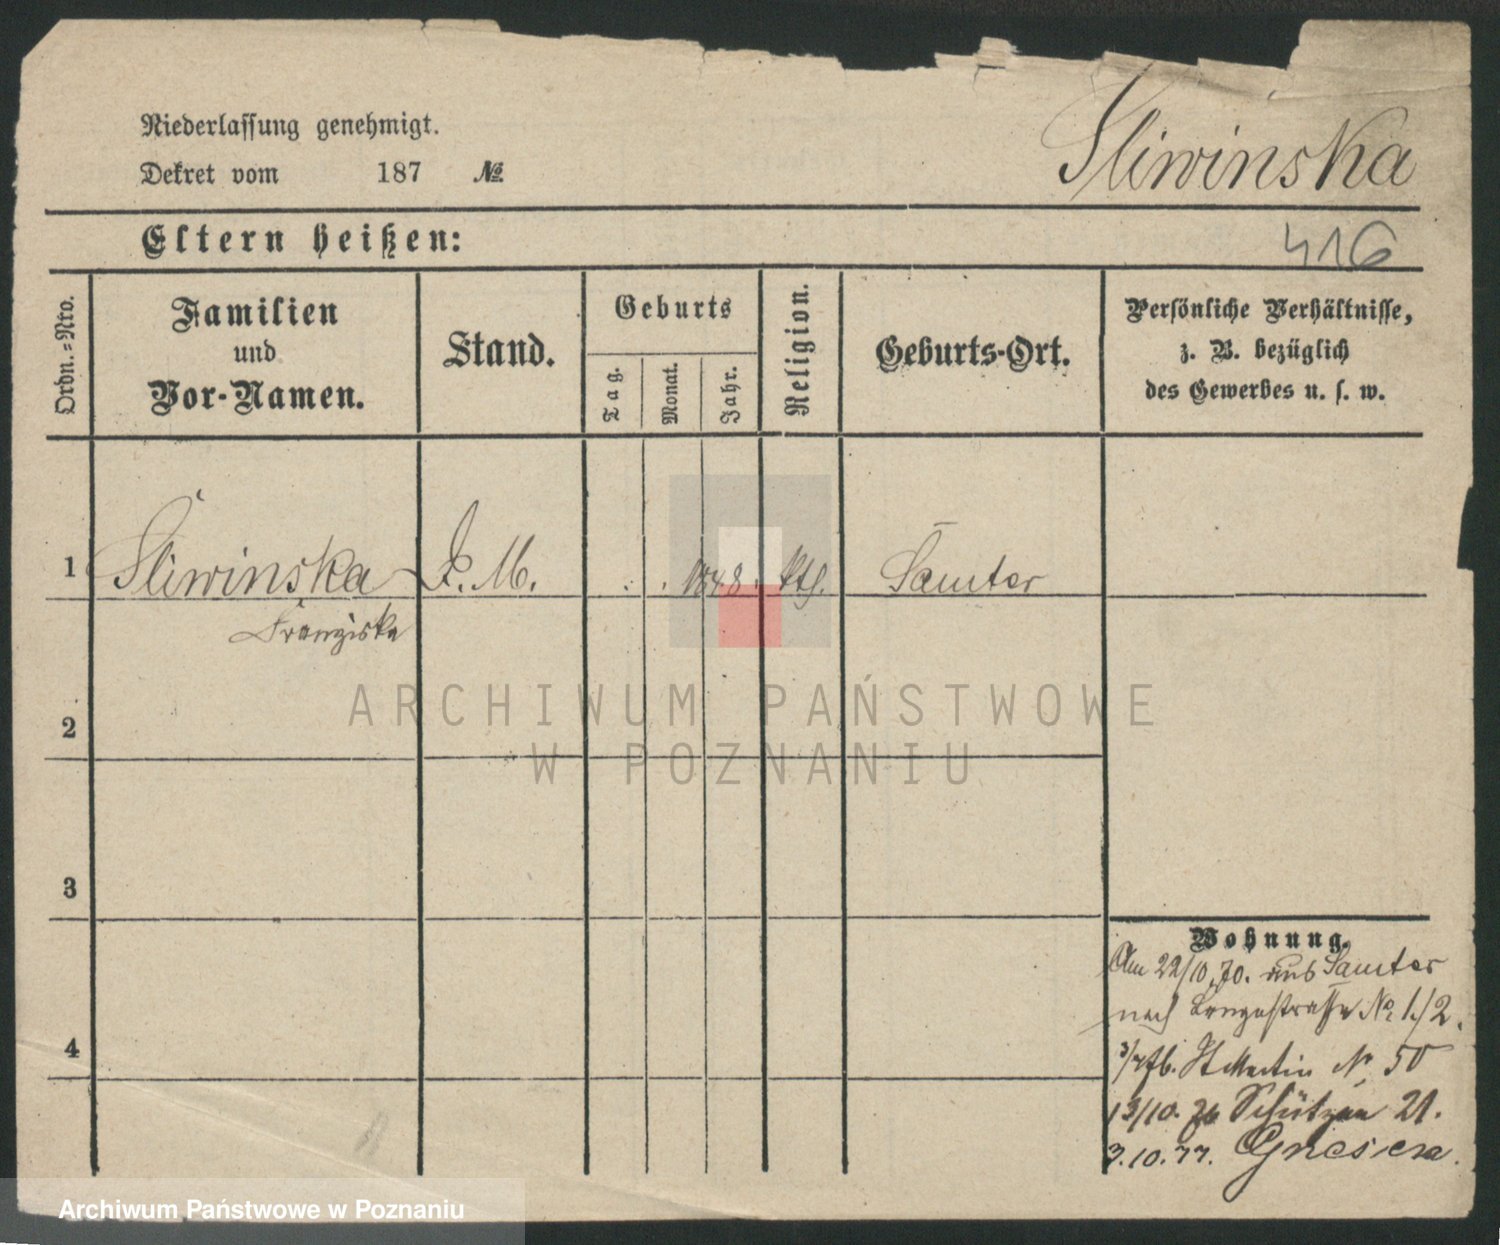 Niederlassung genehmigt.
Dekret vom 187 №
Śliwińska
Eltern heißen:
416
Ordn.-Nro.
Familien
und
Vor-Namen.
Stand.
Geburts
Tag.
Monat.
Jahr.
Religion.
Geburts-Ort.
Persönliche Verhältnisse,
z. B. bezüglich
des Gewerbes u. s. w.
1 Śliwinska D. M. . . 1848. kth. Samter
Franziska
2
3
4
Wohnung.
Am 22/10.70. aus Samter
nach Langestrasse No 1./2.
3/7 76. St Martin No 50
13/10. 76 Schützen 21.
3.10.77. Gnesen.
ARCHIWUM PAŃSTWOWE
W POZNANIU
Archiwum Państwowe w Poznaniu